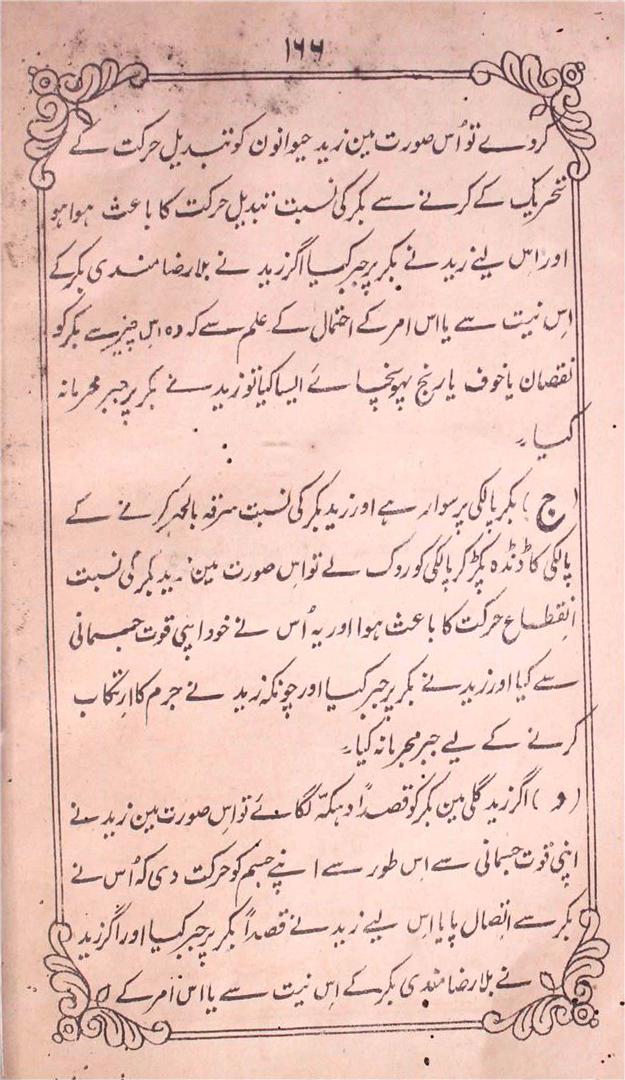 ۱۶۶
کردے تو اُس صورت مین زید حیوانون کو تبدیل حرکت کے
تحریک کے کرنے سے بکر کی نسبت تبدیل حرکت کا باعث ہوا ہو
اور اس لیے زید نے بکر پر جبر کیا اگر زید نے بلا رضامندی بکر کے
اِس نیت سے یا اس امر کے احتمال کے علم سے کہ وہ اس جبر سے بکر کو
نقصان یا خوف یا رنج پہونچائے ایسا کیا تو زید نے بکر پر جبر مجرمانہ
کیا۔
(ج) بکر پالکی پر سوار ہے اور زید بکر کی نسبت سرقہ بالجبر کرنے کے
پالکی کا ڈنڈہ پکڑ کر پالکی کو روک لے تو اس صورت مین زید بکر کی نسبت
انقطاع حرکت کا باعث ہوا اور یہ اُس نے خود اپنی قوت جسمانی
سے کیا اور زید نے بکر پر جبر کیا اور چونکہ زید نے جرم کا ارتکاب
کرنے کے لیے جبر مجرمانہ کیا۔
(د) اگر زید گلی مین بکر کو قصداً دہکہ لگائے تو اس صورت مین زید نے
اپنی قوت جسمانی سے اس طور سے اپنے جسم کو حرکت دی کہ اُس نے
بکر سے اتصال پایا اِس لیے زید نے قصداً بکر پر جبر کیا اور اگر زید
نے بلا رضامندی بکر کے اِس نیت سے یا اس امر کے